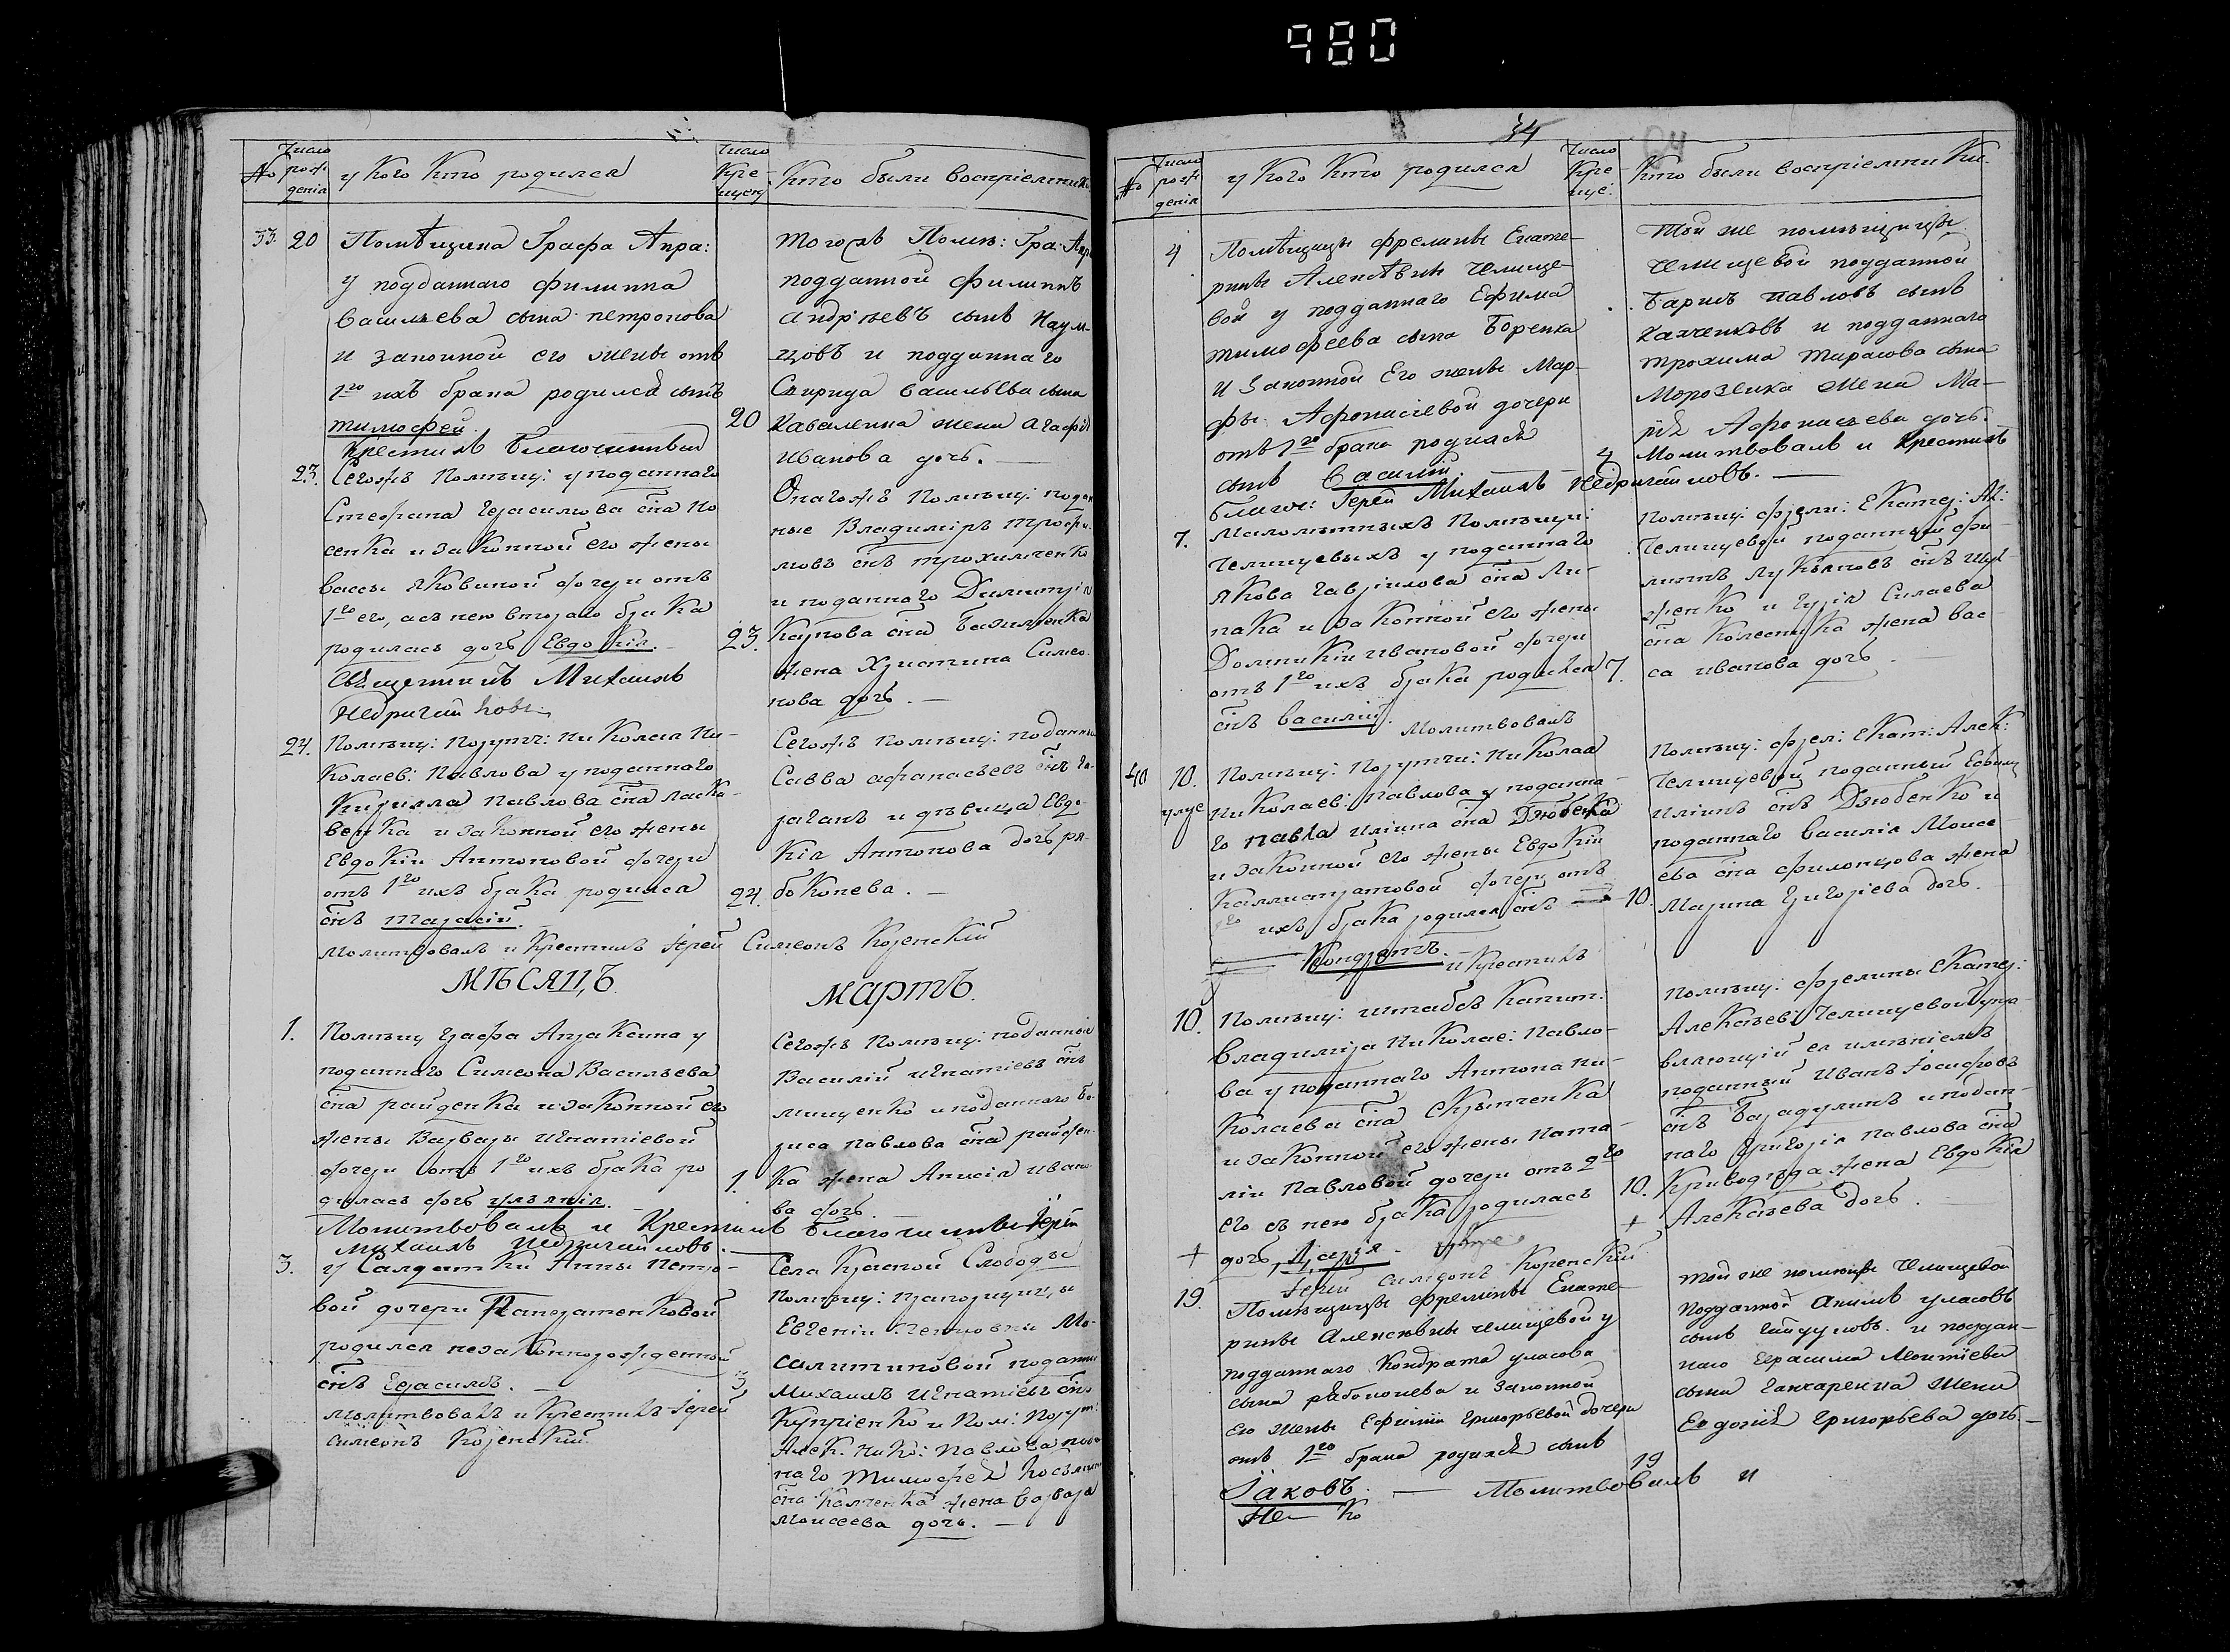 980
Число
№ рож-
денія
у Кого Кто родился
Число
Кре-
щен
Кто были воспріемники
33. 20
Помѣщика Графа Апра:
у подданного Филиппа
Васильева сына Петропова
и законной его жены отъ
1го ихъ брака родился сынъ
Тимофей.
Крестилъ Благочинный
20
Тогожъ Помѣ: Гра: Апр
подданной Филиппъ
Андрѣевъ сынъ Наум-
цовъ и подданнаго
Спирида Васильева сына
Каваленка жена Агафія
Иванова дочь.
23.
Сегожъ Помѣщ: у поданнаго
Стефана Герасимова сна Но
сенка и законной его жены
Вассы Яковиной дочери отъ
1го его, а съ нею втораго брака
родилась дочь Евдокія.
Священникъ Михаилъ
Недригайловъ
23.
Онагожъ Помѣщ: подан
ные Владиміръ Трофи-
мовъ снъ Трохимченко
и поданнаго Димитрія
Карпова сна Базиленка
жена Христина Симео-
нова дочь.
24.
Помѣщ: Порутч: Николая Ни-
колаев: Павлова у поданнаго
Кирилла Павлова сна Ласка-
венка и законной его жены
Евдокіи Антоновой дочери
отъ 1го ихъ брака родился
снъ Тарасій.
24.
Сегожъ Помѣщ: поданны
Савва Афанасьевъ снъ Га-
раганъ и дѣвица Евдо-
кія Антонова дочь ря-
боконева.
Молитвовалъ и Крестилъ Іерей Симеонъ Коренскій
МѢСЯЦЪ МАРТЪ.
1.
Помѣщ Графа Апраксина у
поданнаго Симеона Васильева
сна райденка и законной его
жены Варвары Игнатіевой
дочери отъ 1го ихъ брака ро
дилась дочь Ульянія.
1.
Сегожъ Помѣщ: поданные
Василій Игнатіевъ снъ
Мищенко и поданнаго Бо-
риса Павлова сна райден-
ка жена Анисія Ивано-
ва дочь.
Молитвовалъ и Крестилъ Благочинный Іерей
Михаилъ Недригайловъ.
3.
у Салдатки Анны Петро-
вой дочери
родился незаконнорожденной
снъ Герасимъ.
Молитвовалъ и Крестилъ Іерей
Симеонъ Коренскій
3,
Села Красной Слободы
Помѣщ: Прапорщиц, ы
Евгеніи Петровны Мо-
салитиновой поданны
Михаилъ Игнатіевъ снъ
Купріенко и Пом: Порут:
Алек: Нико: Павлова пода
наго Тимофея Косьмина
сна Калченка жена Варвара
Моисеева дочь.
34
24
Число
№ рож
денія
у Кого Кто родился
Число
Кре
ще:
Кто были воспріемники.
4
Помѣщицы фрелины Екате-
рины Алексѣвны Челище-
вой у подданнаго Ефима
Тимофеева сына Боренка
и законной Его жены Мар-
фы Афонасіевой дочери
отъ 1го брака родился
сынъ Василій.
Благоч: Іерей Михаилъ Недригайловъ.
4
Той же помѣщицы
Челищевой подданной
Барисъ Павловъ сынъ
Калченковъ и подданнаго
Трохима Тарасова сына
Морозенка жена Ма-
рія Афонасьева дочь.
Молитвовалъ и Крестилъ
7.
Малолѣтныхъ Помѣщи:
Челищевыхъ у поданнаго
Якова Гавріилова сна Ли-
пака и законной его жены
Домникіи Ивановой дочери
отъ 1го ихъ брака родился
снъ Василій.
Молитвовалъ
7.
Помѣщ: фрели: Екатер: Ал:
Челищевой поданный Фи-
липъ Лукьяновъ снъ Шул
женко и Гурія Силаева
сна Колесника жена Вас
са Иванова дочь
40 10.
Помѣщ: Порутчи: Николая
Николаев: Павлова у поданна-
го Павла Иліина сна Дзюбенка
и законной его жены Евдокіи
Каллистратовой дочери отъ
1го ихъ брака родился снъ
Кондратъ. и Крестилъ
10.
Помѣщ: фрел: Екат: Алек:
Челищевой поданный Ефимъ
Иліинъ снъ Дзюбенко и
поданнаго Василія Моисе-
ева сна Филонцова жена
Марина Григоріева дочь.
10.
Помѣщ: Штабсъ Капит:
Владиміра Николае: Павло-
ва у поданнаго Антона Ни-
колаева сна Скрыпченка
и законной его жены Ната-
ліи Павловой дочери отъ 2го
его съ нею брака родилась
+ дочь, Дарія.
Іерей Симеонъ Коренскій
10.
+
Помѣщ: фрелины Екатер:
Алексѣев: Челищевой упра-
вляющій ея имѣніемъ
поданный Иванъ Іосифовъ
снъ Барадулинъ и подан-
наго Григорія Павлова сна
Криводѣда жена Евдокія
Алексѣева дочь.
19.
Помѣщицы Фрелины Екате-
рины Алексѣвны Челищевой у
подданнаго Кондрата Уласова
сына рябоконева и законной
Его жены Ефиміи Григорьевой дочери
отъ 1го брака родился сынъ
Іаковъ. — Молитвовалъ и
19
Той же помѣщ Челищевой
подданной Акимъ Уласовъ
сынъ Гайдуковъ. и поддан-
наго Герасима Моитіева
сына Ганчаренка жена
Евдокія Григорьева дочь.